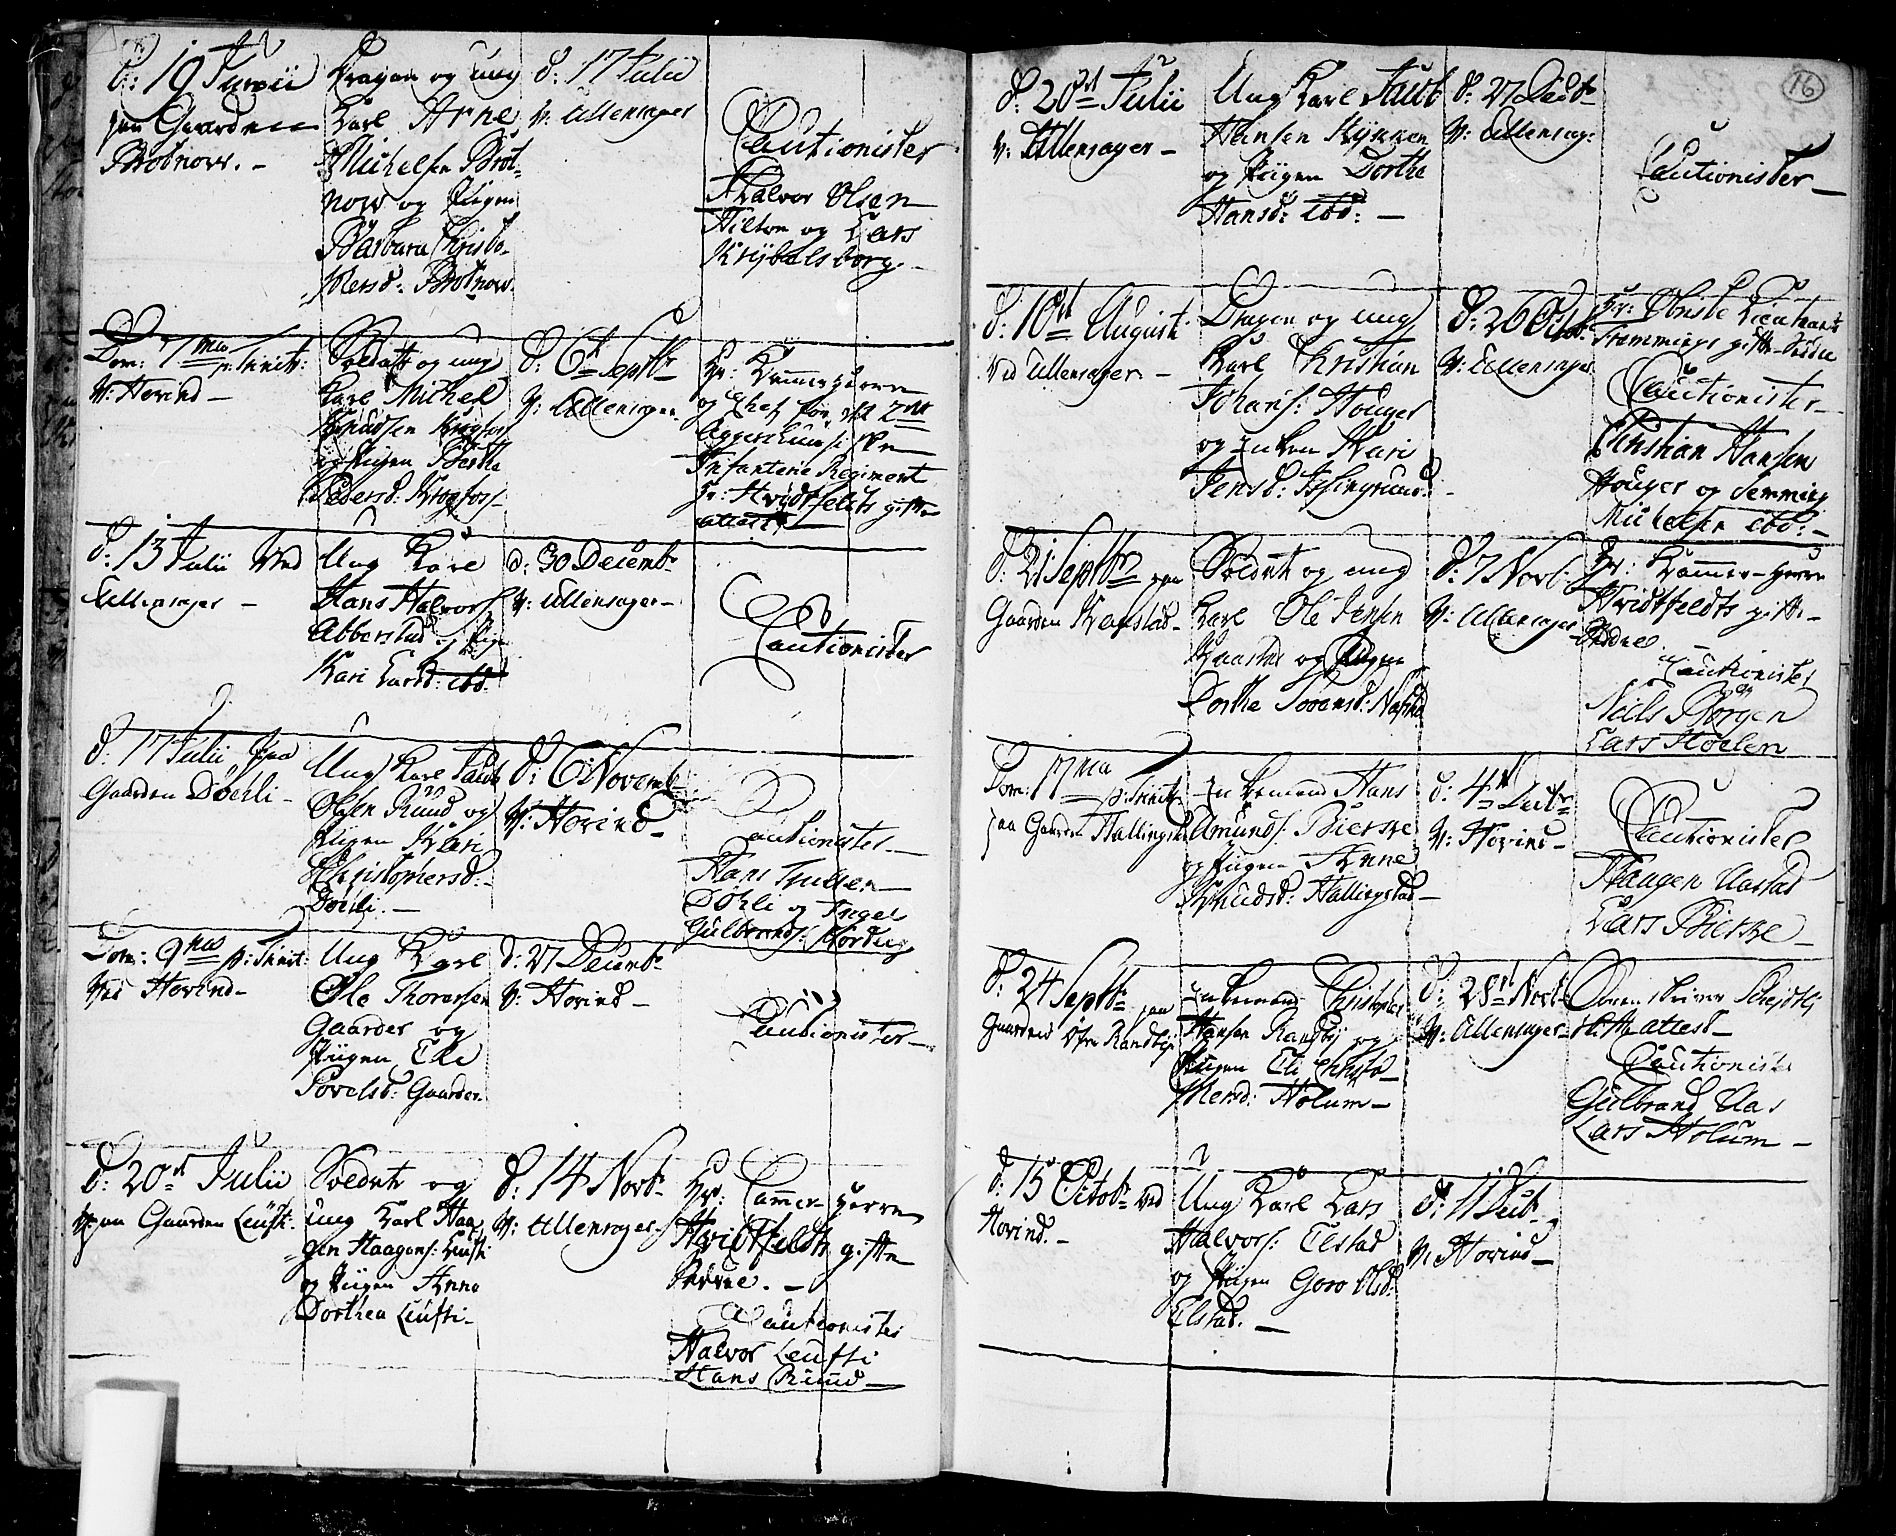 d: 19 Junii
paa Gaarden
Brotnow. -
Dragon og ung
Karl Arne
Michelsen Brot-
now og Pigen
Barbara Christo-
phersd: Brotnow.
d: 17 Julii
V: Ullensager
Cautionister
Halvor Olsen
Hilton og Lars
Krybelsborg. -
Dom: 7ma p: Trinit:
V: Hovind -
Soldat og ung
Karl Michel
Knudsen Krogfos
og Pigen Berthe
Pedersd: Krogfos -
d: 6t Septbr
V: Ullensager.
Hr: Kammerherre
og Chef for det 2det
Aggershuusiske
Infanterie Regiment
Hr: Hvidtfeldts gifte
attest
d: 13 Julii Ved
Ullensager -
Ung Karl
Hans Halvors:
Abberstad og Pigen
Kari Larsd: ibd:
d: 30 Decembr
V: Ullensager -
Cautionister
d: 17 Julii paa
Gaarden Döehli -
Ung Karl
Olsen Ruud og
Pigen Kari
Christophersd:
Döehli. -
d: 6 Novemb:
V: Hovind -
Cautionister -
Hans
Döhli og Ingel
Gulbrands: Nordbye
Dom: 9nas p: Trinit:
Ved Hovind -
Ung Karl
Ole Thoresen
Gaarder og
Pigen Eli
Povelsd: Gaarder
d: 27 Decembr
V: Hovind -
Cautionister -
d: 20de Julii
paa Gaarden Leufti -
Soldat og
ung Karl Haa-
gen Haagens: Leufti
og Pigen Anna
Dorthea Leufti -
d: 14 Novbr
V: Ullensager -
Hr: Cammer-Herre
Hvidtfeldts gifte
Sedle. -
Cautionister
Halvor Leufti
Hans Ruud -
16
d: 20de Julii
V: Ullensager -
Ung Karl
Hansen Kynnen
og Pigen Dorthe
Hansd: ibd: -
d: 27 Decbr
V: Ullensag:
Cautionister -
d: 10de August
Ved Ullensager -
Dragon og ung
Karl Christian
Johans: Houger
og Enken Kari
Jensd:
d: 26 Octobr
V: Ullensager
Hr: Obriste Lieutnant
Flemmings gifte Sedle
Cautionister -
Christian Hansen
Houger og Semming
Michelsen ibd: -
d: 21 Septbr paa
Gaarden Kvaastad -
Soldat og ung
Karl Ole Jensen
Kvaastad og Pigen
Dorthe
d: 7 Novb:
V: Ullensager -
Hr: Kammer-Herre
Hvidtfeldts gifte-
Sedle
Cautionister
Niels Borgen
Lars Hoelen
Dom: 17ma p: Trinit:
paa Gaarden Hallingstad
Enkemand Hans
Amunds: Bierke
og Pigen Anne
Knudsd: Hallingstad -
d: 4de Decbr
V: Hovind -
Cautionister
Haagen Aastad
Lars Bierke -
d: 24 Septbr paa
Gaarden Öfre Randbye
Enkemand Christopher
Hansen Randby og
Pigen Eli Christo-
phersd: Holum -
d: 28de Novbr
V: Ullensager -
Sorenskriver
Skifte attest -
Cautionister
Gulbrand Aas
Lars Holum -
d: 15 Octobr Ved
Hovind. -
Ung Karl Lars
Halvors: Elstad
og Pigen Goro Olsd:
Elstad. -
d: 11 Decbr
V: Hovind -